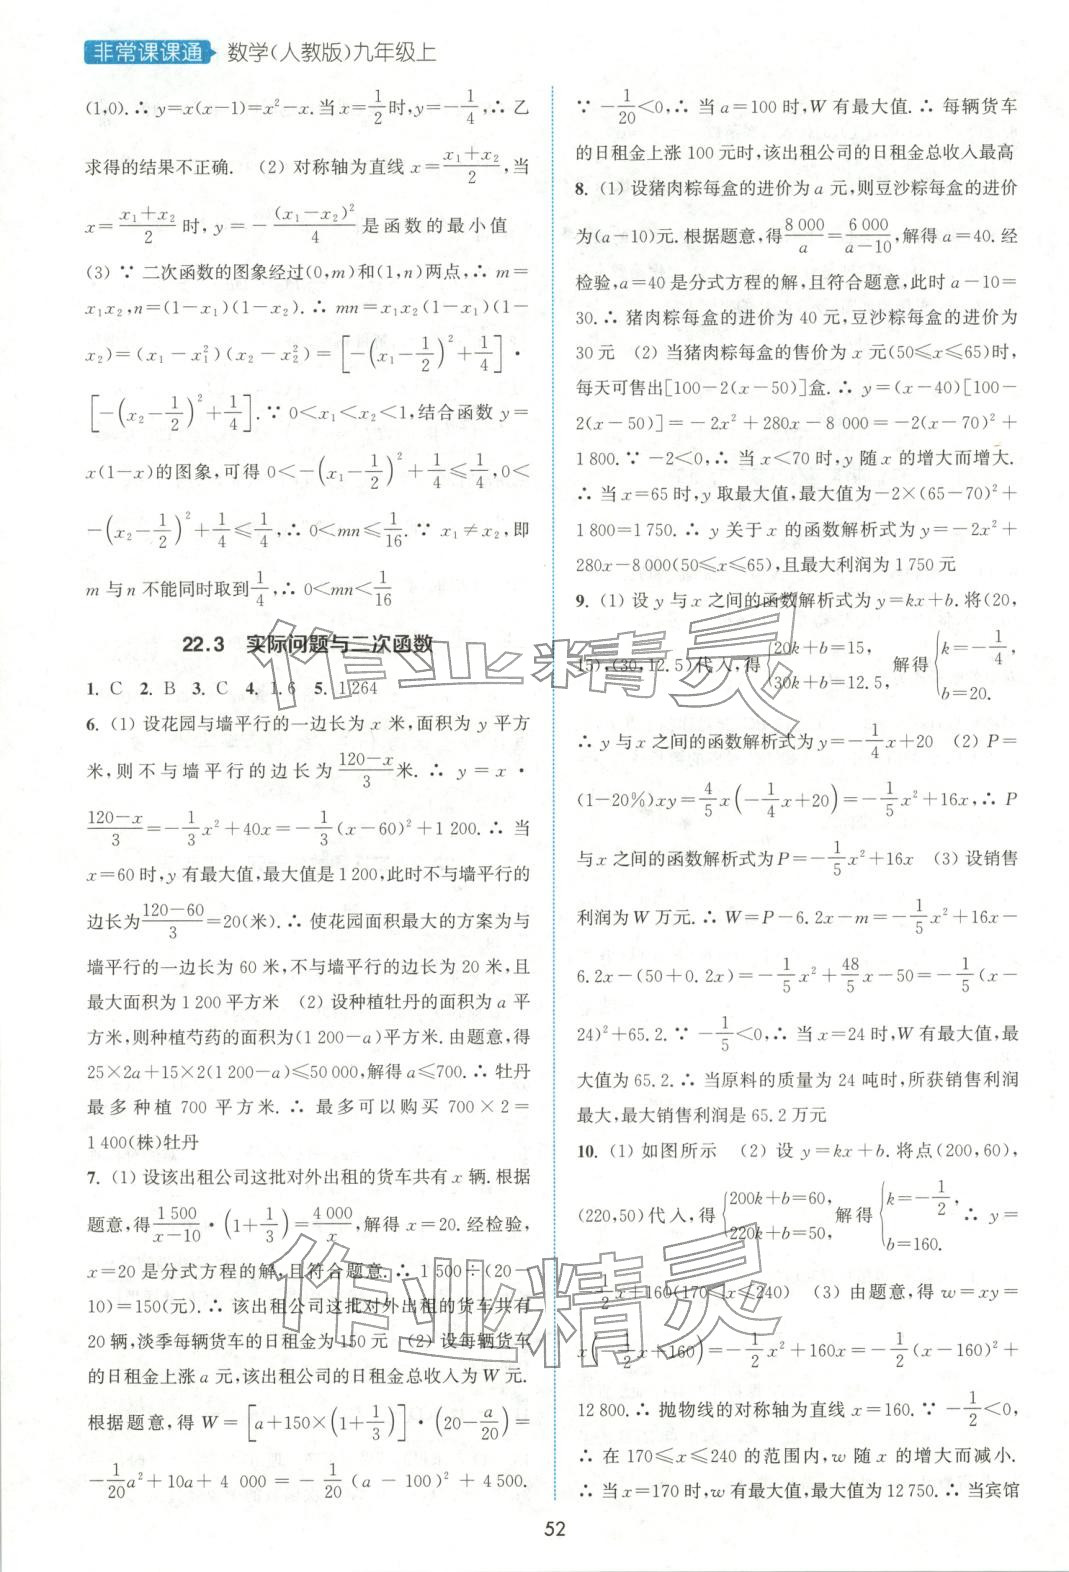 非常课课通 数学(人教版)九年级上
(1,0).∴ y=x(x−1)=x²−x.当 x=1/2时,y=−1/4,∴ 乙
求得的结果不正确. (2) 对称轴为直线 x=(x₁+x₂)/2,当
x=(x₁+x₂)/2 时, y=−(x₁−x₂)²/4 是函数的最小值
(3) ∵ 二次函数的图象经过(0,m)和(1,n)两点,∴ m=
x₁x₂,n=(1−x₁)(1−x₂).∴ mn=x₁x₂(1−x₁)(1−
x₂)=(x₁−x₁²)(x₂−x₂²)=[−(x₁−1/2)²+1/4]·
[−(x₂−1/2)²+1/4].∵ 0<x₁<x₂<1,结合函数 y=
x(1−x)的图象,可得 0<−(x₁−1/2)²+1/4≤1/4,0<
−(x₂−1/2)²+1/4≤1/4,∴ 0<mn≤1/16.∵ x₁≠x₂,即
m 与 n 不能同时取到1/4,∴ 0<mn<1/16
22.3 实际问题与二次函数
1. C 2. B 3. C 4. 1.6 5. 1 264
6. (1) 设花园与墙平行的一边长为 x 米,面积为 y 平方
米,则不与墙平行的边长为(120−x)/3米.∴ y=x·
(120−x)/3=−1/3x²+40x=−1/3(x−60)²+1 200.∴ 当
x=60 时,y 有最大值,最大值是 1 200,此时不与墙平行的
边长为(120−60)/3=20(米).∴ 使花园面积最大的方案为与
墙平行的一边长为 60 米,不与墙平行的边长为 20 米,且
最大面积为 1 200 平方米 (2) 设种植牡丹的面积为 a 平
方米,则种植芍药的面积为(1 200−a)平方米.由题意,得
25×2a+15×2(1 200−a)≤50 000,解得 a≤700.∴ 牡丹
最多种植 700 平方米.∴ 最多可以购买 700×2=
1 400(株)牡丹
7. (1) 设该出租公司这批对外出租的货车共有 x 辆.根据
题意,得1 500/(x−10)·(1+1/3)=4 000/x,解得 x=20.经检验,
x=20 是分式方程的解,且符合题意.∴ 1 500÷(20−
10)=150(元).∴ 该出租公司这批对外出租的货车共有
20 辆,淡季每辆货车的日租金为 150 元 (2) 设每辆货车
的日租金上涨 a 元,该出租公司的日租金总收入为 W 元.
根据题意,得 W=[a+150×(1+1/3)]·(20−a/20)=
−1/20a²+10a+4 000=−1/20(a−100)²+4 500.
∵ −1/20<0,∴ 当 a=100 时,W 有最大值.∴ 每辆货车
的日租金上涨 100 元时,该出租公司的日租金总收入最高
8. (1) 设猪肉粽每盒的进价为 a 元,则豆沙粽每盒的进价
为(a−10)元.根据题意,得8 000/a=6 000/(a−10),解得 a=40.经
检验,a=40 是分式方程的解,且符合题意,此时 a−10=
30.∴ 猪肉粽每盒的进价为 40 元,豆沙粽每盒的进价为
30 元 (2) 当猪肉粽每盒的售价为 x 元(50≤x≤65)时,
每天可售出[100−2(x−50)]盒.∴ y=(x−40)[100−
2(x−50)]=−2x²+280x−8 000=−2(x−70)²+
1 800.∵ −2<0,∴ 当 x<70 时,y 随 x 的增大而增大.
∴ 当 x=65 时,y 取最大值,最大值为−2×(65−70)²+
1 800=1 750.∴ y 关于 x 的函数解析式为 y=−2x²+
280x−8 000(50≤x≤65),且最大利润为 1 750 元
9. (1) 设 y 与 x 之间的函数解析式为 y=kx+b.将(20,
15),(30,12.5)代入,得{20k+b=15, 30k+b=12.5, 解得{k=−1/4, b=20.
∴ y 与 x 之间的函数解析式为 y=−1/4x+20 (2) P=
(1−20%)xy=4/5x(−1/4x+20)=−1/5x²+16x,∴ P
与 x 之间的函数解析式为 P=−1/5x²+16x (3) 设销售
利润为 W 万元.∴ W=P−6.2x−m=−1/5x²+16x−
6.2x−(50+0.2x)=−1/5x²+48/5x−50=−1/5(x−
24)²+65.2.∵ −1/5<0,∴ 当 x=24 时,W 有最大值,最
大值为 65.2.∴ 当原料的质量为 24 吨时,所获销售利润
最大,最大销售利润是 65.2 万元
10. (1) 如图所示 (2) 设 y=kx+b.将点(200,60),
(220,50)代入,得{200k+b=60, 220k+b=50, 解得{k=−1/2, b=160. ∴ y=
−1/2x+160(170≤x≤240) (3) 由题意,得 w=xy=
x(−1/2x+160)=−1/2x²+160x=−1/2(x−160)²+
12 800.∴ 抛物线的对称轴为直线 x=160.∵ −1/2<0,
∴ 在 170≤x≤240 的范围内,w 随 x 的增大而减小.
∴ 当 x=170 时,w 有最大值,最大值为 12 750.∴ 当宾馆
52
作业精灵
作业精灵